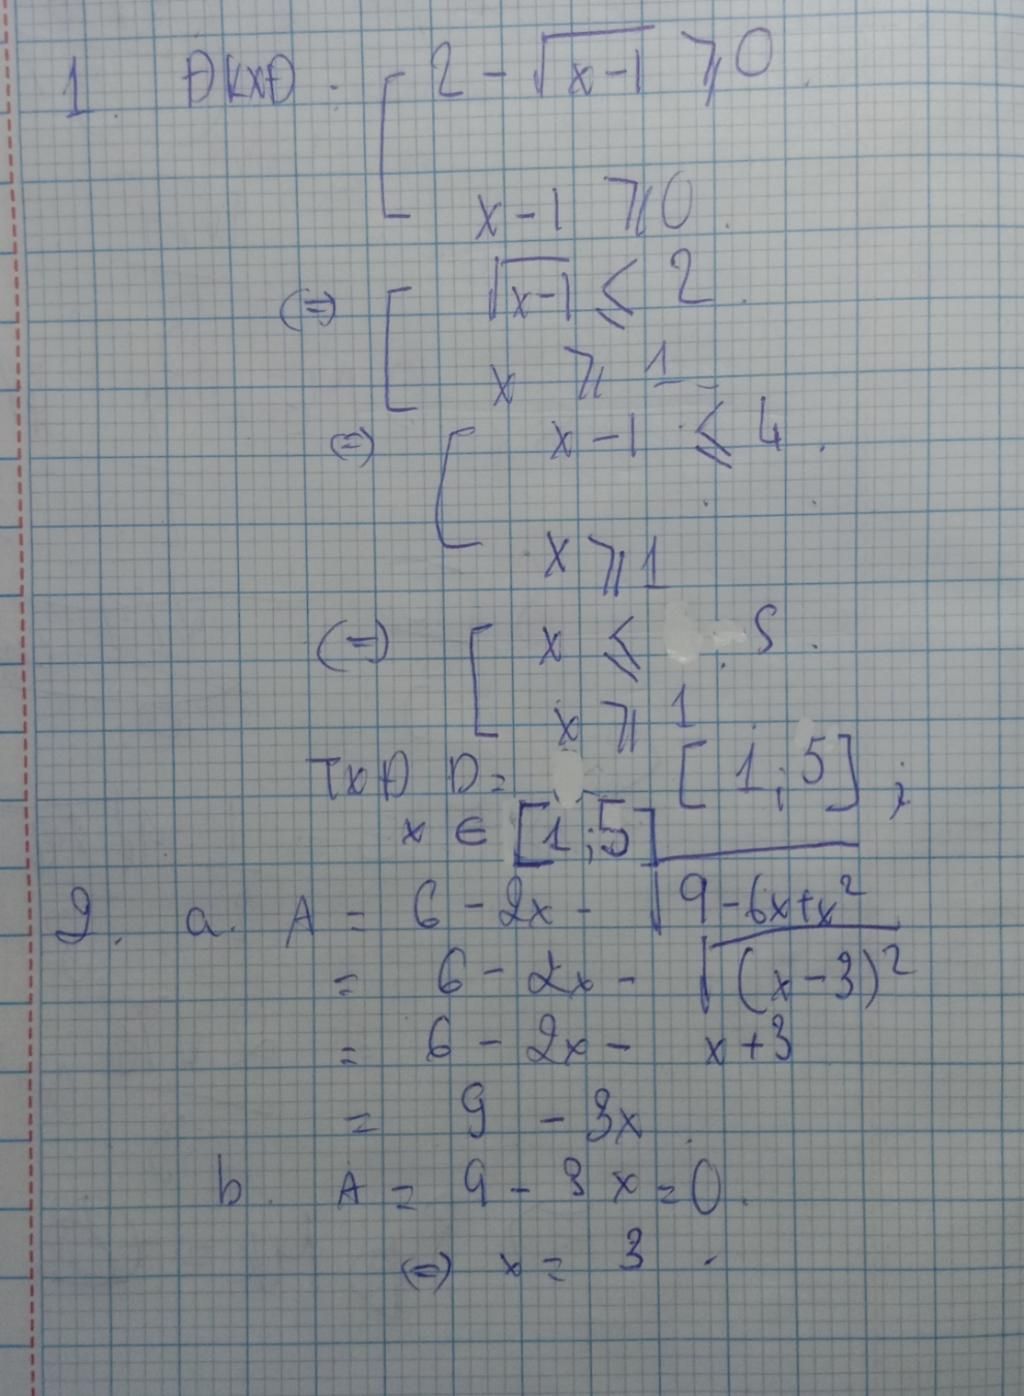 1. ĐKXĐ: [ 2 - √(x-1) ⩾ 0.
x - 1 ⩾ 0.
(=) [ √(x-1) ⩽ 2.
x ⩾ 1
(=) [ x - 1 ⩽ 4.
x ⩾ 1
(=) [ x ⩽ 5.
x ⩾ 1
TXĐ D = [1;5];
x ∈ [1;5]
2. a. A = 6 - 2x - √(9 - 6x + x²)
= 6 - 2x - √((x-3)²)
= 6 - 2x - x + 3
= 9 - 3x.
b. A = 9 - 3x = 0.
(=) x = 3.